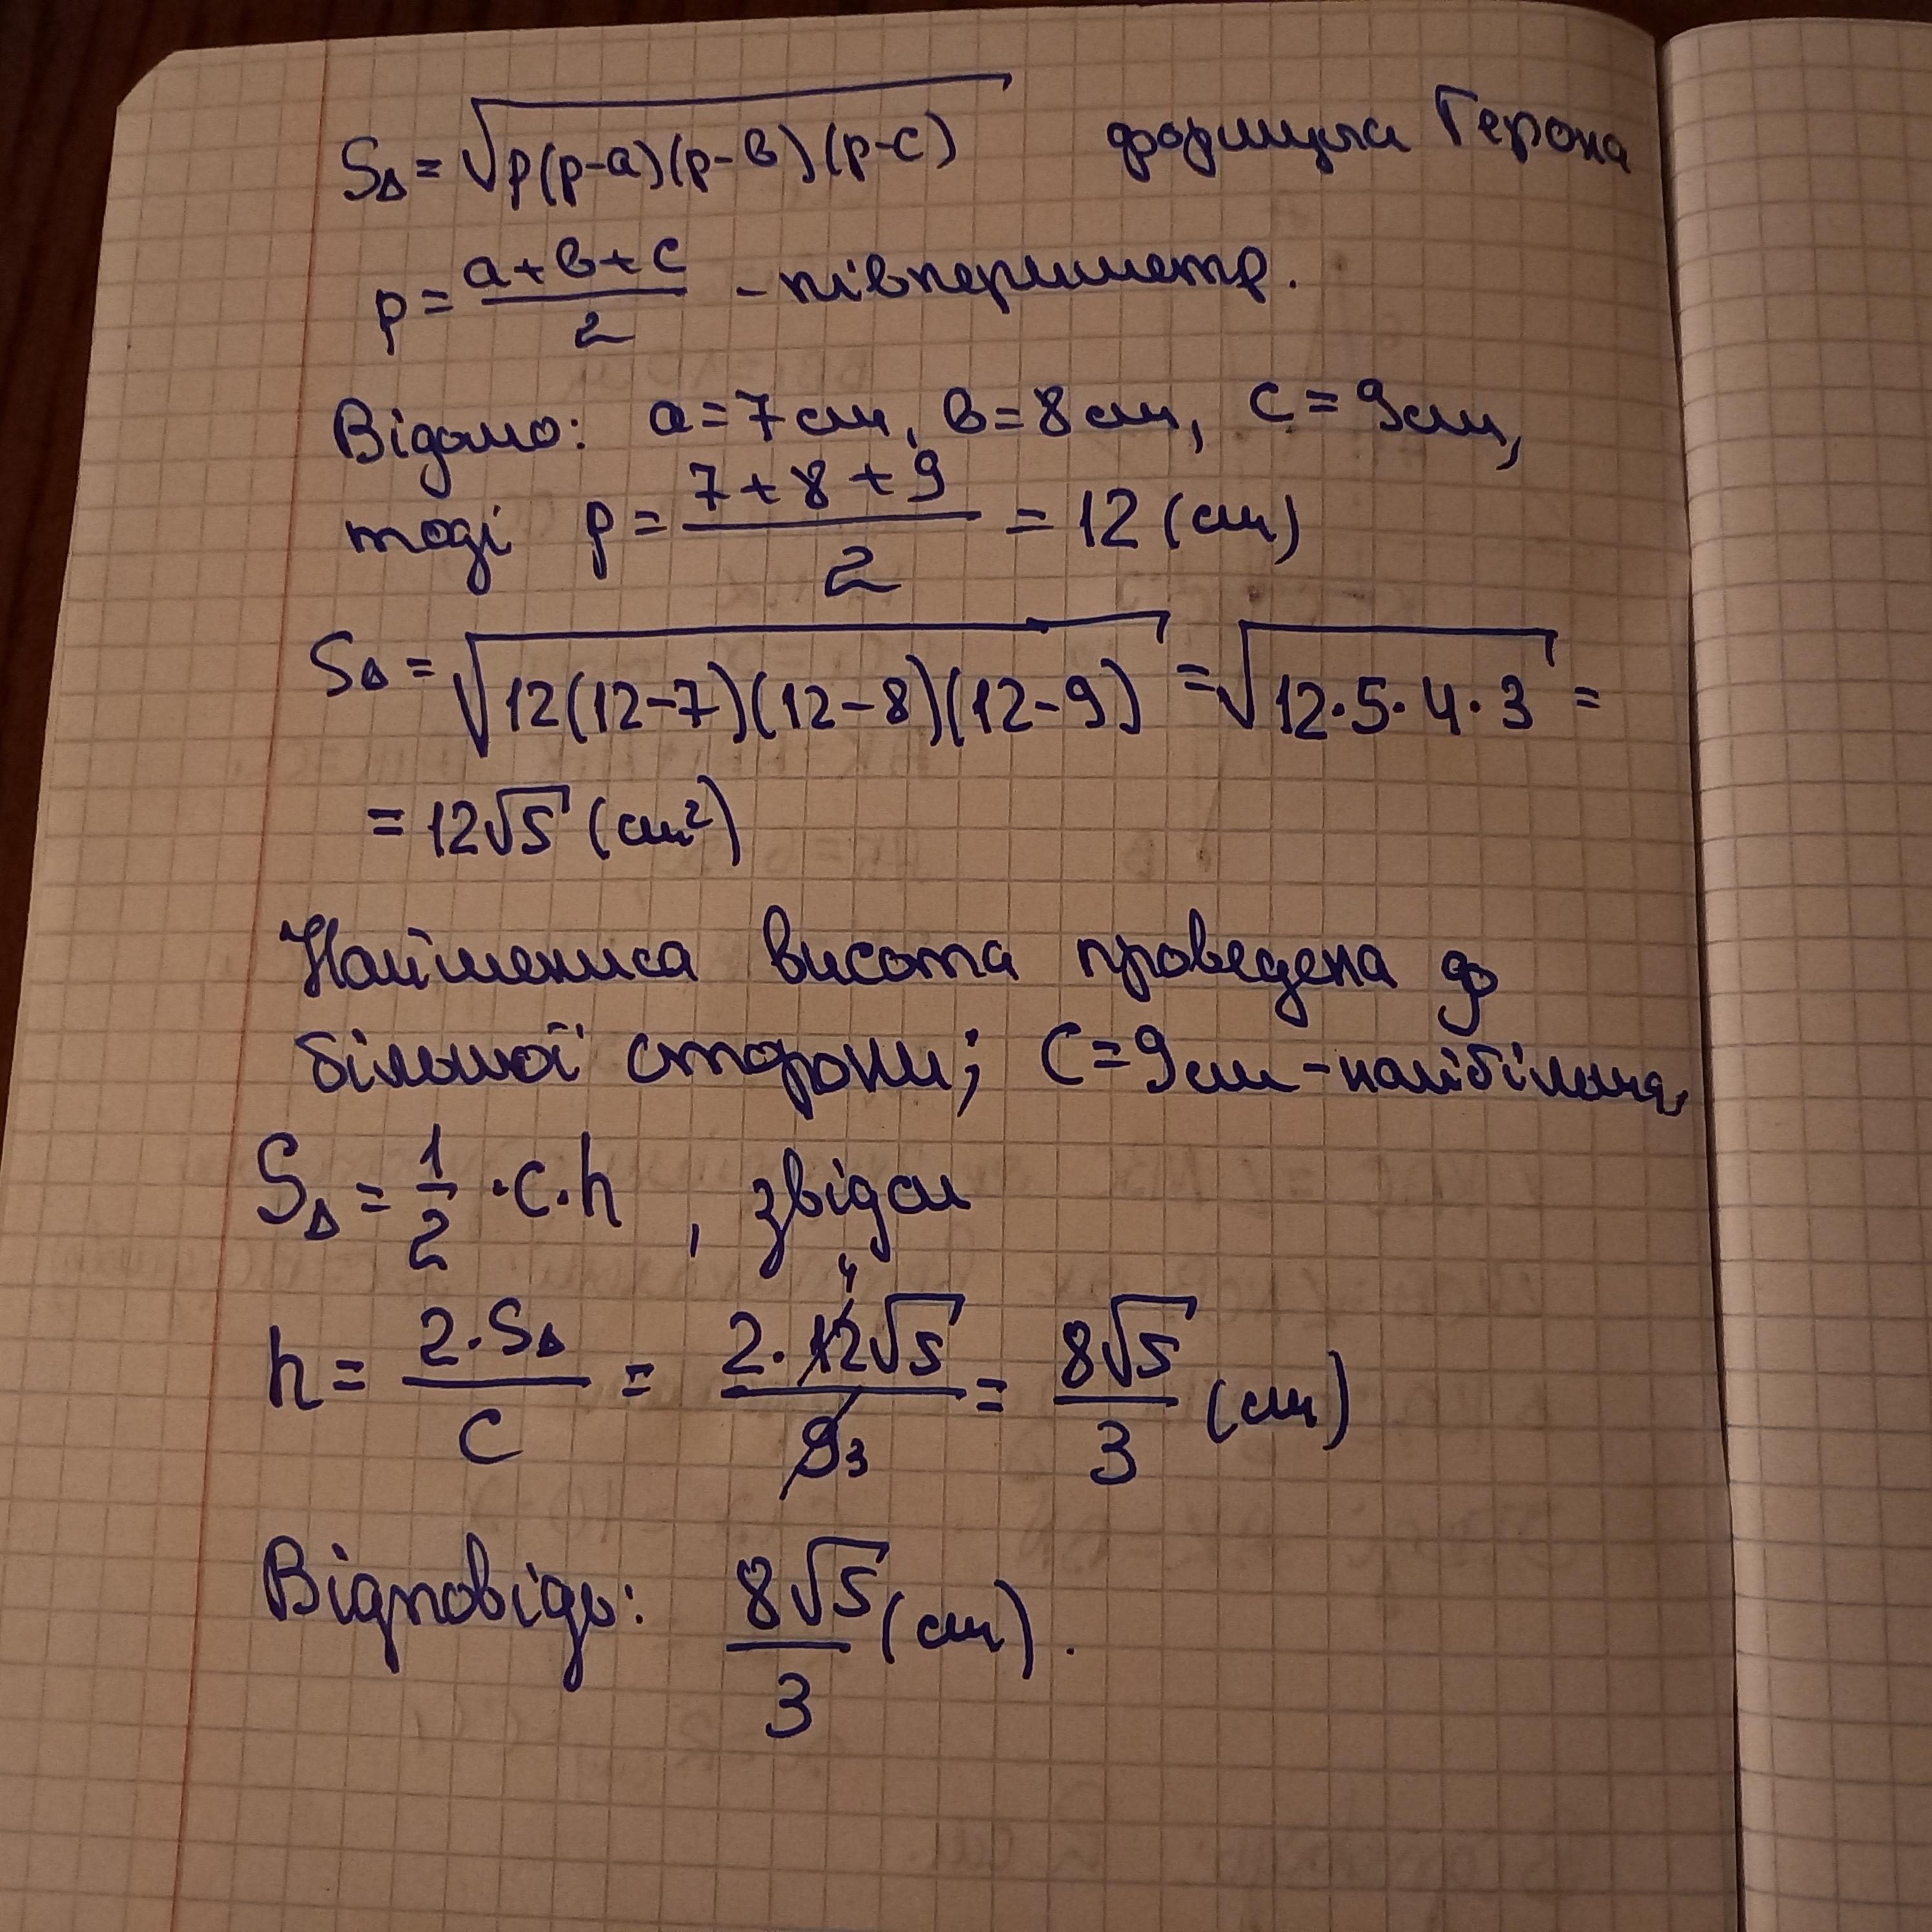 S△ = √p(p-a)(p-в)(p-c) формула Герона
p = (a+в+c)/2 - півпериметр.
Відомо: a=7см, в=8см, c=9см,
тоді p = (7+8+9)/2 = 12 (см)
S△ = √12(12-7)(12-8)(12-9) = √12·5·4·3 =
= 12√5 (см²)
Найменша висота проведена до
більшої сторони; C=9см - найбільша,
S△ = 1/2 ·c·h , звідси
h = 2·S△/C = 2·12√5/9 4 3 = 8√5/3 (см)
Відповідь: 8√5/3 (см).